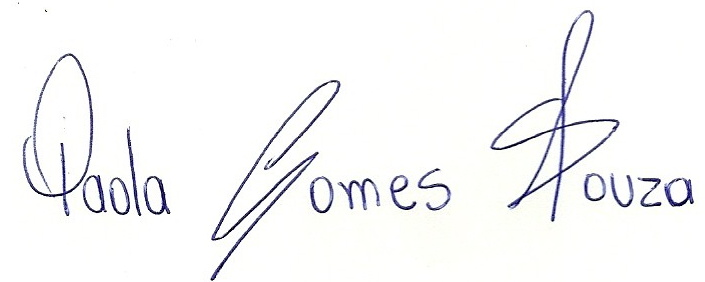 Paola Gomes Souza